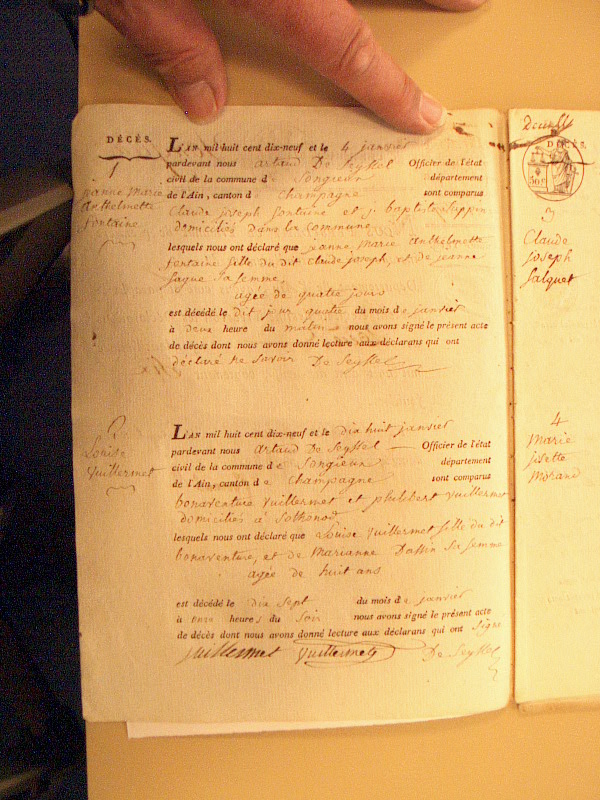 DÉCÈS.
1
jeanne Marie
Anthelmette
fontaine
L'AN mil huit cent dix-neuf et le 4 janvier
pardevant nous Artaud De Seyssel Officier de l'état
civil de la commune de Songieux département
de l'Ain, canton de Champagne sont comparus
Claude joseph fontaine et j. baptiste
domiciliés dans la commune
lesquels nous ont déclaré que jeanne Marie Anthelmette
fontaine fille du dit Claude joseph, et de jeanne
sa femme
agée de quatre jours
est décédé le dit jour quatre du mois de janvier
à deux heure du matin nous avons signé le présent acte
de décès dont nous avons donné lecture aux déclarans qui ont
déclaré ne savoir De Seyssel
2
Louise
Vuillermet
L'AN mil huit cent dix-neuf et le dix huit janvier
pardevant nous Artaud De Seyssel Officier de l'état
civil de la commune de Songieux département
de l'Ain, canton de Champagne sont comparus
bonaventure Vuillermet et philibert Vuillermet
domiciliés à Sothonod
lesquels nous ont déclaré que Louise Vuillermet fille du dit
bonaventure, et de Marianne sa femme
agée de huit ans
est décédé le dix sept du mois de janvier
à onze heures du soir nous avons signé le présent acte
de décès dont nous avons donné lecture aux déclarans qui ont signé
Vuillermet Vuillermet De Seyssel
DÉCÈS.
3
Claude
joseph
Salquet
4
Marie
josette
Morand